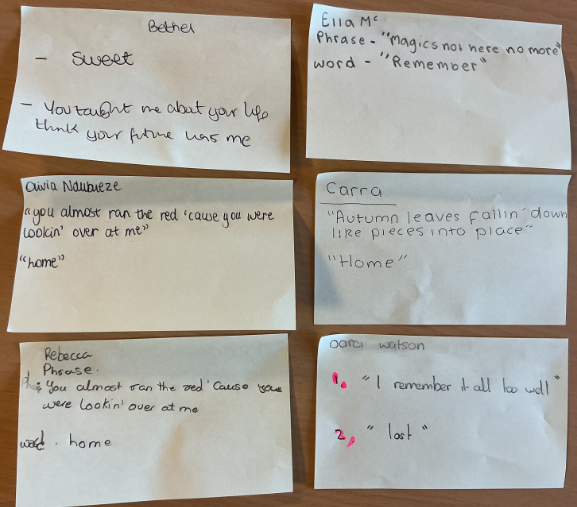 Bethel
- Sweet
- You taught me about your life
think your future was me
Ella Mc
Phrase - "Magics not here no more"
word - "Remember"
Olivia Ndubueze
"you almost ran the red 'cause you were
lookin' over at me"
"home"
Carra
"Autumn leaves fallin' down
like pieces into place"
"Home"
Rebecca
Phrase.
You almost ran the red 'Cause you
were lookin' over at me
word . home
Darci Watson
1. "I remember it all too well"
2, "lost"